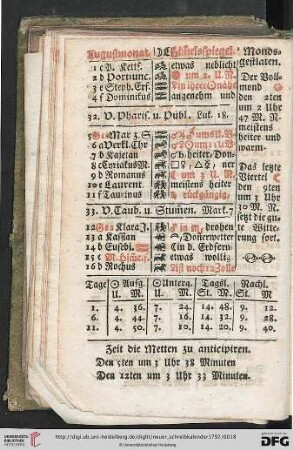 Augustmonat. Himmelsspiegel. Monds-
gestalten.
1 c V. Kettf. etwas neblicht
2 d Portiunc. um 2. U. N.
3 e Steph. Erf. in ihrer Gnade
4 f Dominikus angenehm und
32. V. Pharis. u. Publ. Luk. 18.
5 G Mar. Sch.
6 a Verkl. Chr
7 b Kajetan
8 c Cyriakus M. heiter, Don-
9 d Romanus ner
10 e Laurent. meistens heiter
11 f Taurinus rückgängig,
33. V. Taub. u. Stumen. Mark. 7
12 G Klara J. drohen
13 a Kassian Donerwetter
14 b Euseb. in d. Erdfern
15 c M. Himelf. etwas wolkig
16 d Rochus Ist noch 12 Zolle
Der Voll-
mond
den 2ten
um 2 Uhr
47 M. N.
meistens
heiter und
warm.
Das letzte
Viertel
den 9ten
um 3 Uhr
30 M. N.
setzt die gu-
te Witte-
rung fort.
Tage Aufg. Unterg. Tagsl. Nachl.
U. M. U. M. St. M. St. M
1. 4. 36. 7. 24. 14. 48. 9. 12.
6. 4. 44. 7. 16. 14. 32. 9. 28.
11. 4. 50. 7. 10. 14. 20. 9. 40.
Zeit die Metten zu anticipiren.
Den 5ten um 3 Uhr 38 Minuten
Den 12ten um 3 Uhr 33 Minuten.
http://digi.ub.uni-heidelberg.de/diglit/neuer_schreibkalender1792/0018
© Universitätsbibliothek Heidelberg
UNIVERSITÄTS-
BIBLIOTHEK
HEIDELBERG
Gefördert durch die
DFG